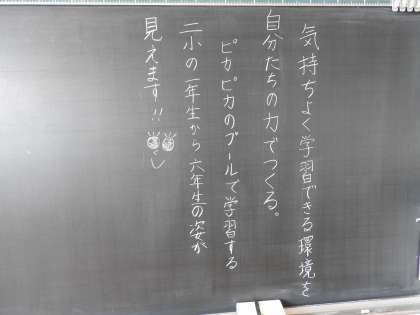 気持ちよく学習できる環境を
自分たちの力でつくる。
ピカピカのプールで学習する
二小の一年生から六年生の姿が
見えます!!